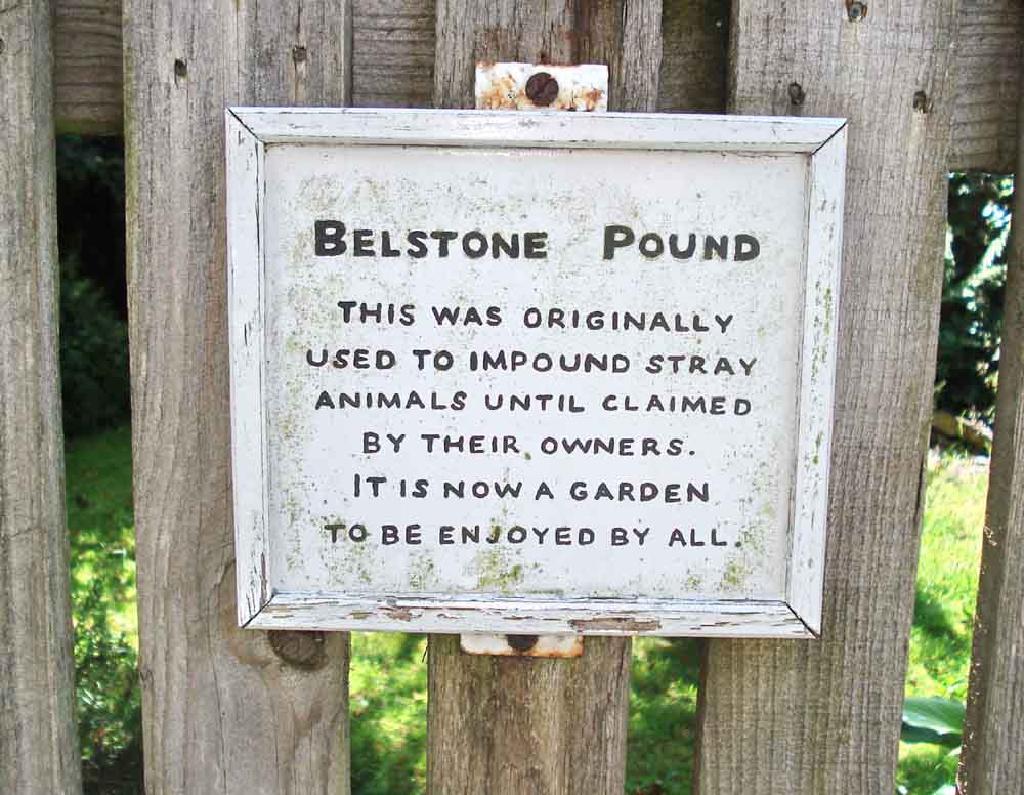 BELSTONE POUND
THIS WAS ORIGINALLY
USED TO IMPOUND STRAY
ANIMALS UNTIL CLAIMED
BY THEIR OWNERS.
IT IS NOW A GARDEN
TO BE ENJOYED BY ALL.